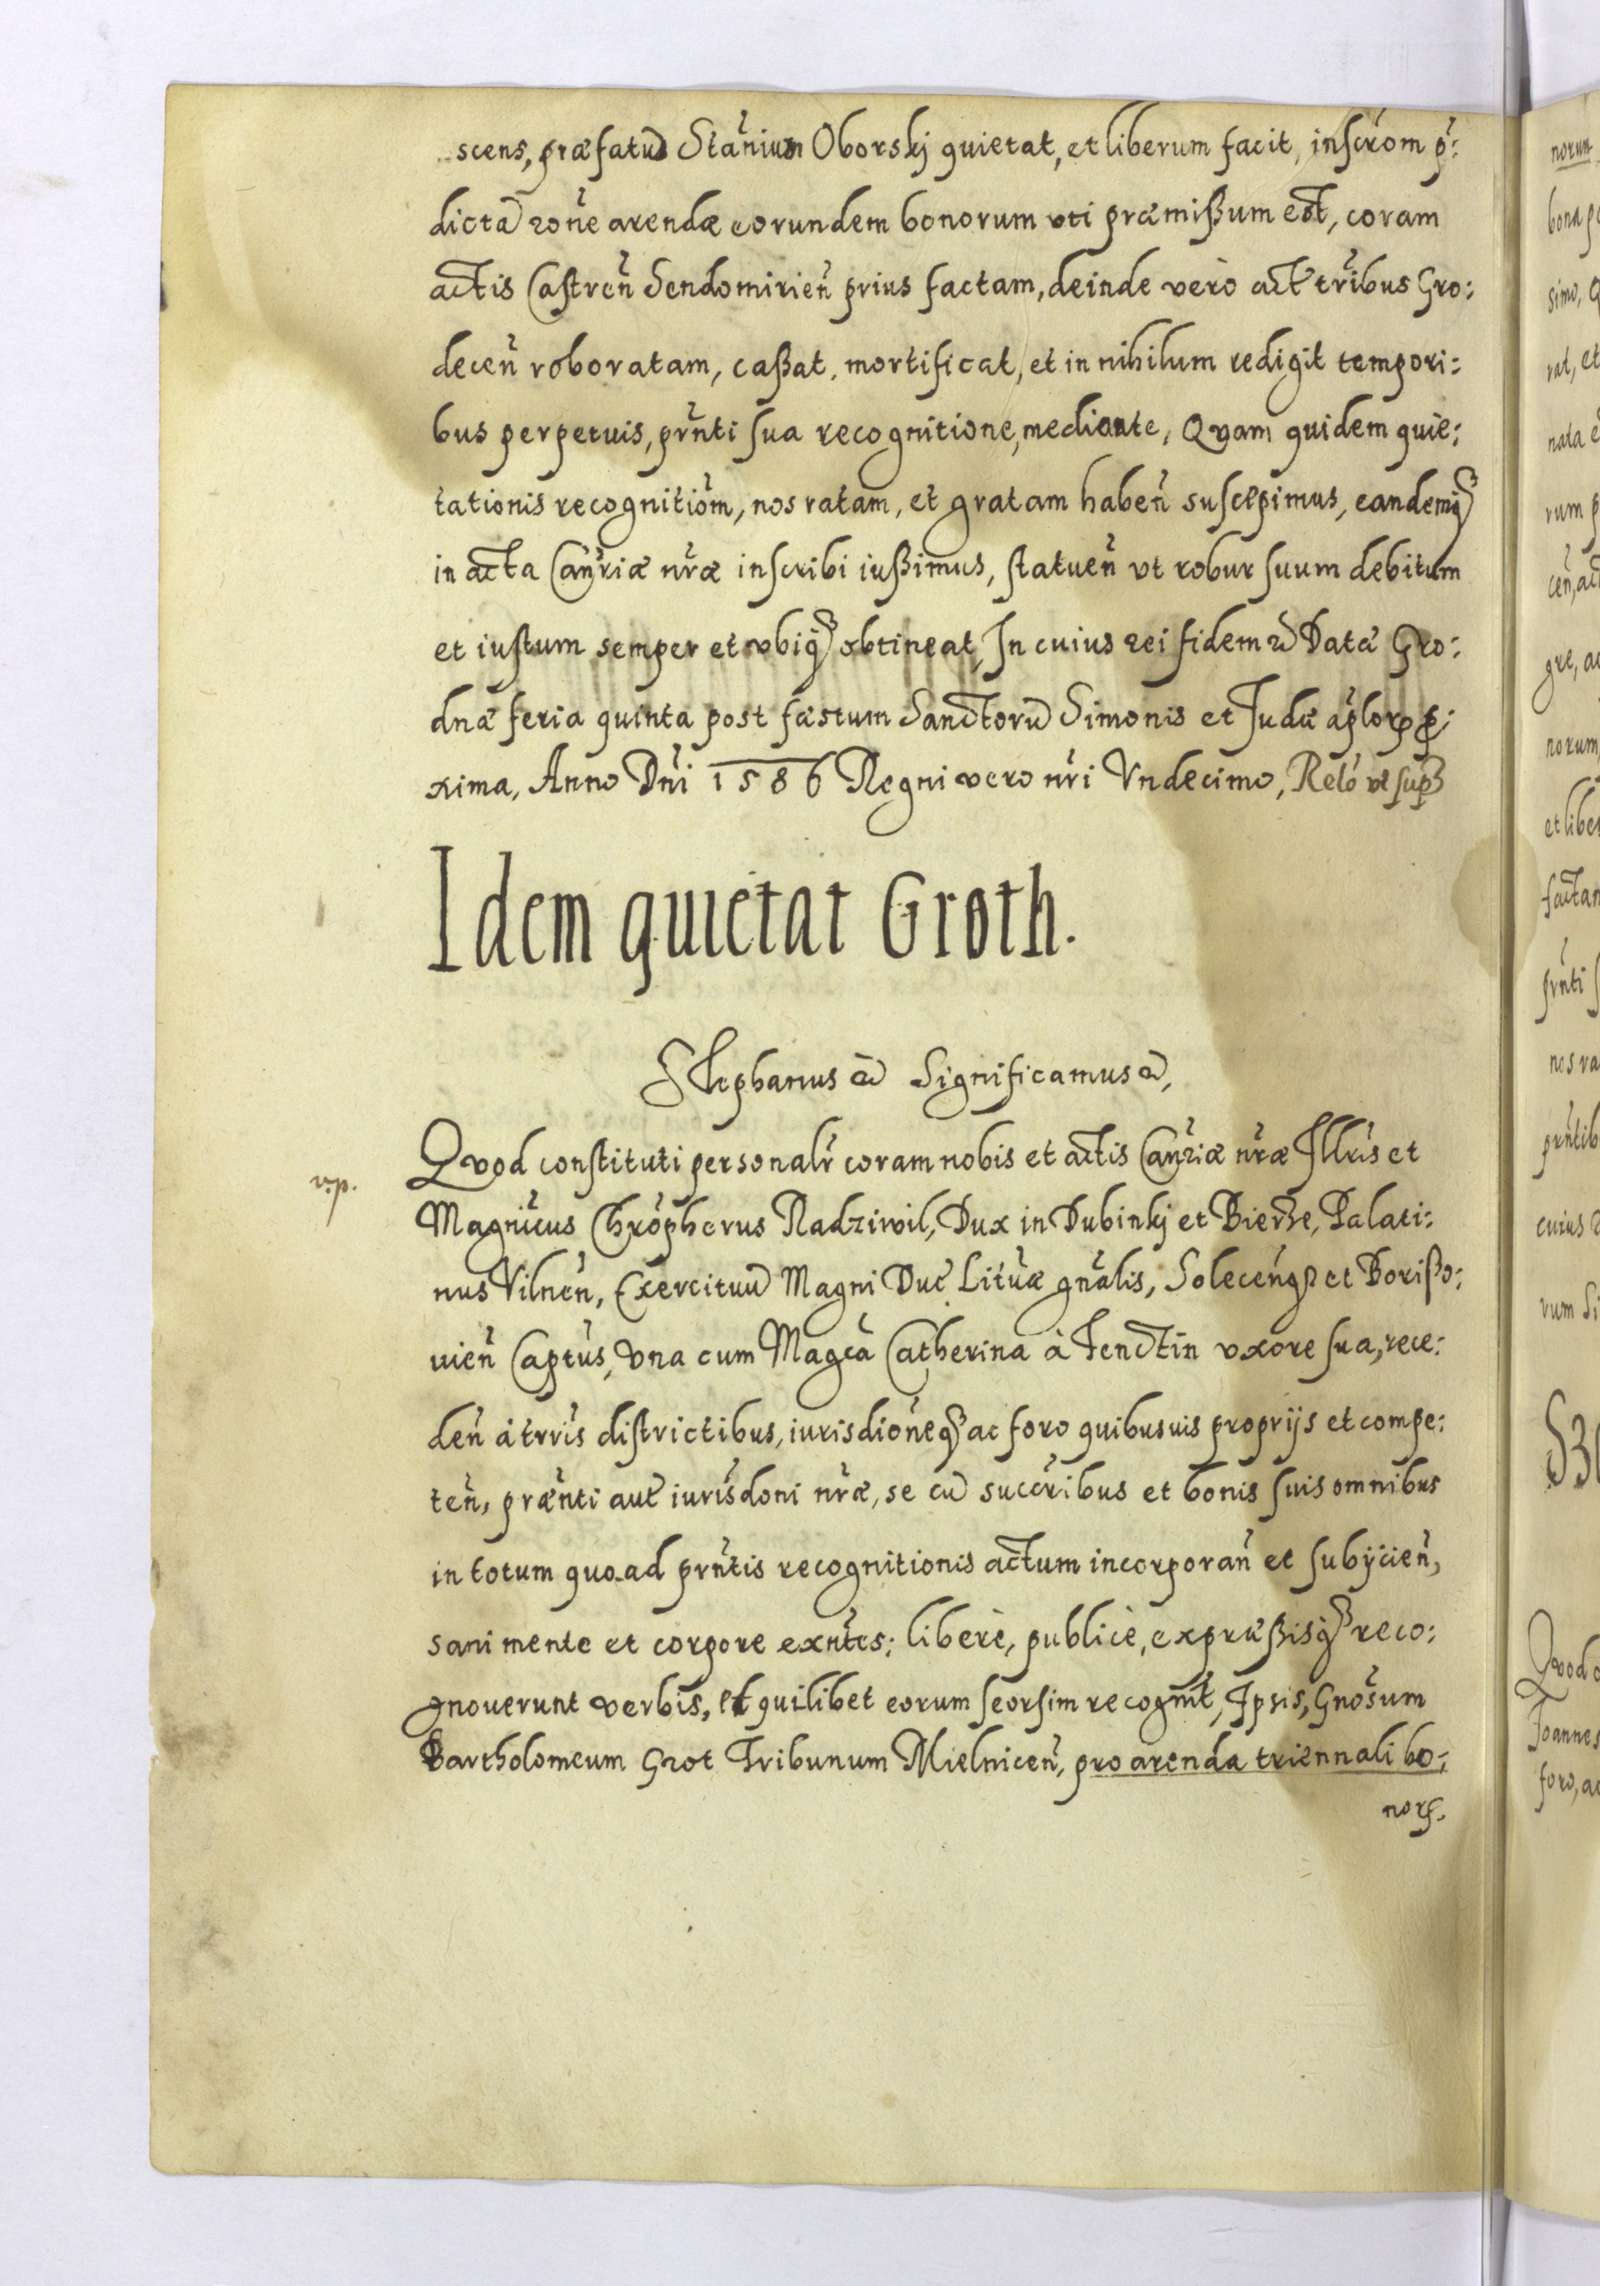 scens, præfatũ Stañium Oborskj quietat, et liberum facit, inscr̃om p̃:
dictã rõne arendæ eorundem bonorum uti præmißum est, coram
actis Castreñ Sendomirieñ prius factam, deinde verò act̃ tr̃ibus Gro:
deceñ roboratam, caßat, mortificat, et in nihilum redigit tempori:
bus perpetuis, pr̃nti sua recognitione, mediante, Quam quidem quie:
tationis recognitiõm, nos ratam, et gratam habeñ suscepimus, eandemq̃
in acta Cañriæ nr̃æ inscribi iußimus, statueñ ut robur suum debitum
et iustum semper et ubiq̃ obtineat, In cuius rei fidem &c Datæ Gro:
dnæ feria quinta post festum Sanctorũ Simonis et Judæ ap̃lorꝝ ꝓ:
xima, Anno Dñi 1586 Regni vero nr̃i Undecimo, Relõ ut supr̃
Idem quietat Groth.
Stephanus &c Significamus &c,
v.p.
Quod constituti personalr̃ coram nobis et actis Cañriæ nr̃æ Illr̃is et
Magnicus Chr̃opherus Radziwil, Dux in Dubinkj et Bierże, Palati:
nus Vilneñ, Exercituũ Magni Duc̃ Litũæ gñalis, Soleceñqꝫ et Borißo:
uieñ Captus, una cum Magcã Catherina à Tenctin uxore sua, rece:
deñ à trr̃is districtibus, iurisdiõneq̃ ac foro quibusuis proprijs et compe:
teñ, præñti aut̃ iurisdoni nr̃æ, se cũ succr̃ibus et bonis suis omnibus
in totum quo ad pr̃ntis recognitionis actum incorporañ et subijcieñ,
sani mente et corpore exñtes; liberè, publicè, expræßisq̃ reco:
gnouerunt verbis, et quilibet eorum seorsim recognit, Ipsis, Gnõsum
Bartholomeum Grot Tribunum Mielniceñ, pro arenda triennali bo:
norꝝ.